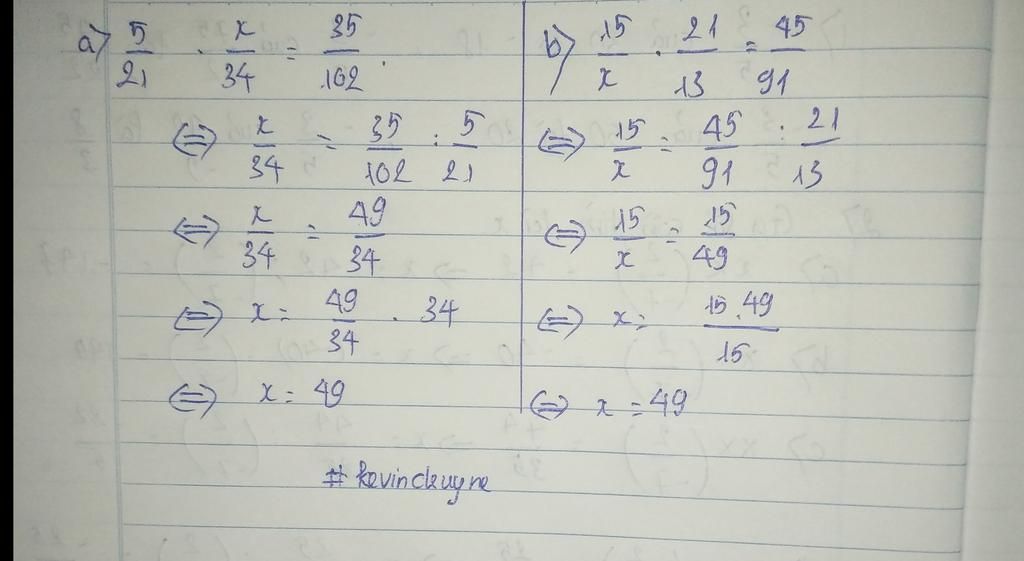 a) 5/21 . x/34 = 35/102.
⇔ x/34 = 35/102 : 5/21
⇔ x/34 = 49/34
⇔ x = 49/34 . 34
⇔ x = 49
b) 15/x . 21/13 = 45/91
⇔ 15/x = 45/91 : 21/13
⇔ 15/x = 15/49
⇔ x = 15.49/15
⇔ x = 49